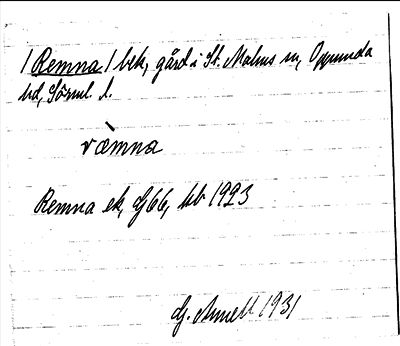 / Remna / bek, gård i St. Malms sn, Oppunda
hd, Söml. l.
ràmna
Remna ek, Gj 66, Ub 1923
G. Annell 1931